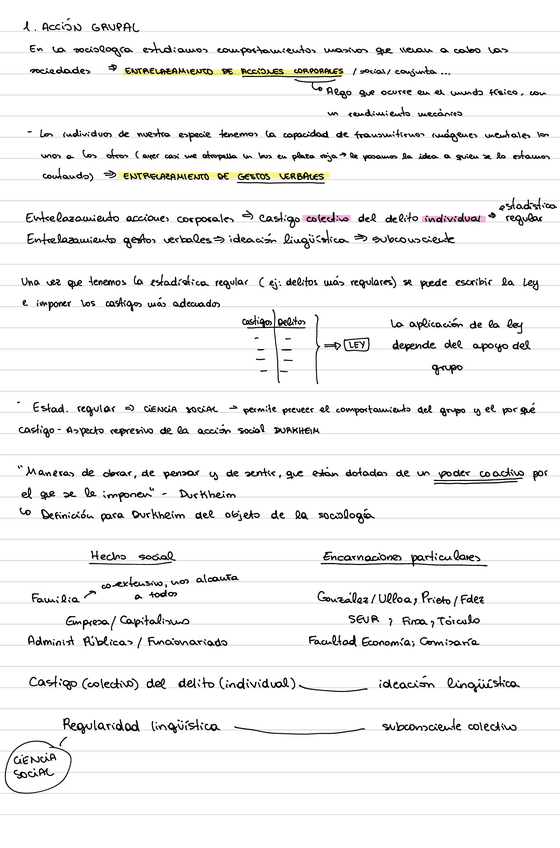 1. ACCIÓN GRUPAL
En la sociología estudiamos comportamientos masivos que llevan a cabo las
sociedades ⇒ ENTRELAZAMIENTO DE ACCIONES CORPORALES / social / conjunta ...
↳ Algo que ocurre en el mundo físico, con
un rendimiento mecánico
- Los individuos de nuestra especie tenemos la capacidad de transmitirnos imágenes mentales los
unos a los otros (ayer casi me atropella un bus en plaza roja → le pasamos la idea a quien se la estamos
contando) ⇒ ENTRELAZAMIENTO DE GESTOS VERBALES
Entrelazamiento acciones corporales ⇒ Castigo colectivo del delito individual → estadística regular
Entrelazamiento gestos verbales ⇒ ideación lingüística ⇒ subconsciente
Una vez que tenemos la estadística regular (ej: delitos más regulares) se puede escribir la Ley
e imponer los castigos más adecuados
Castigos | Delitos
⇒ LEY
La aplicación de la ley
depende del apoyo del
grupo
- Estad. regular ⇒ CIENCIA SOCIAL → permite preveer el comportamiento del grupo y el por qué
Castigo - Aspecto represivo de la acción social DURKHEIM
"Maneras de obrar, de pensar y de sentir, que están dotadas de un poder coactivo por
el que se le imponen" - Durkheim
↳ Definición para Durkheim del objeto de la sociología
Hecho social Encarnaciones particulares
Familia → co-extensivo, nos alcanza a todos González / Ulloa, Prieto / Fdez
Empresa / Capitalismo SEUR, Finsa, Tórculo
Administ Públicas / Funcionariado Facultad Economía, Comisaría
Castigo (colectivo) del delito (individual) ideación lingüística
Regularidad lingüística subconsciente colectivo
CIENCIA
SOCIAL